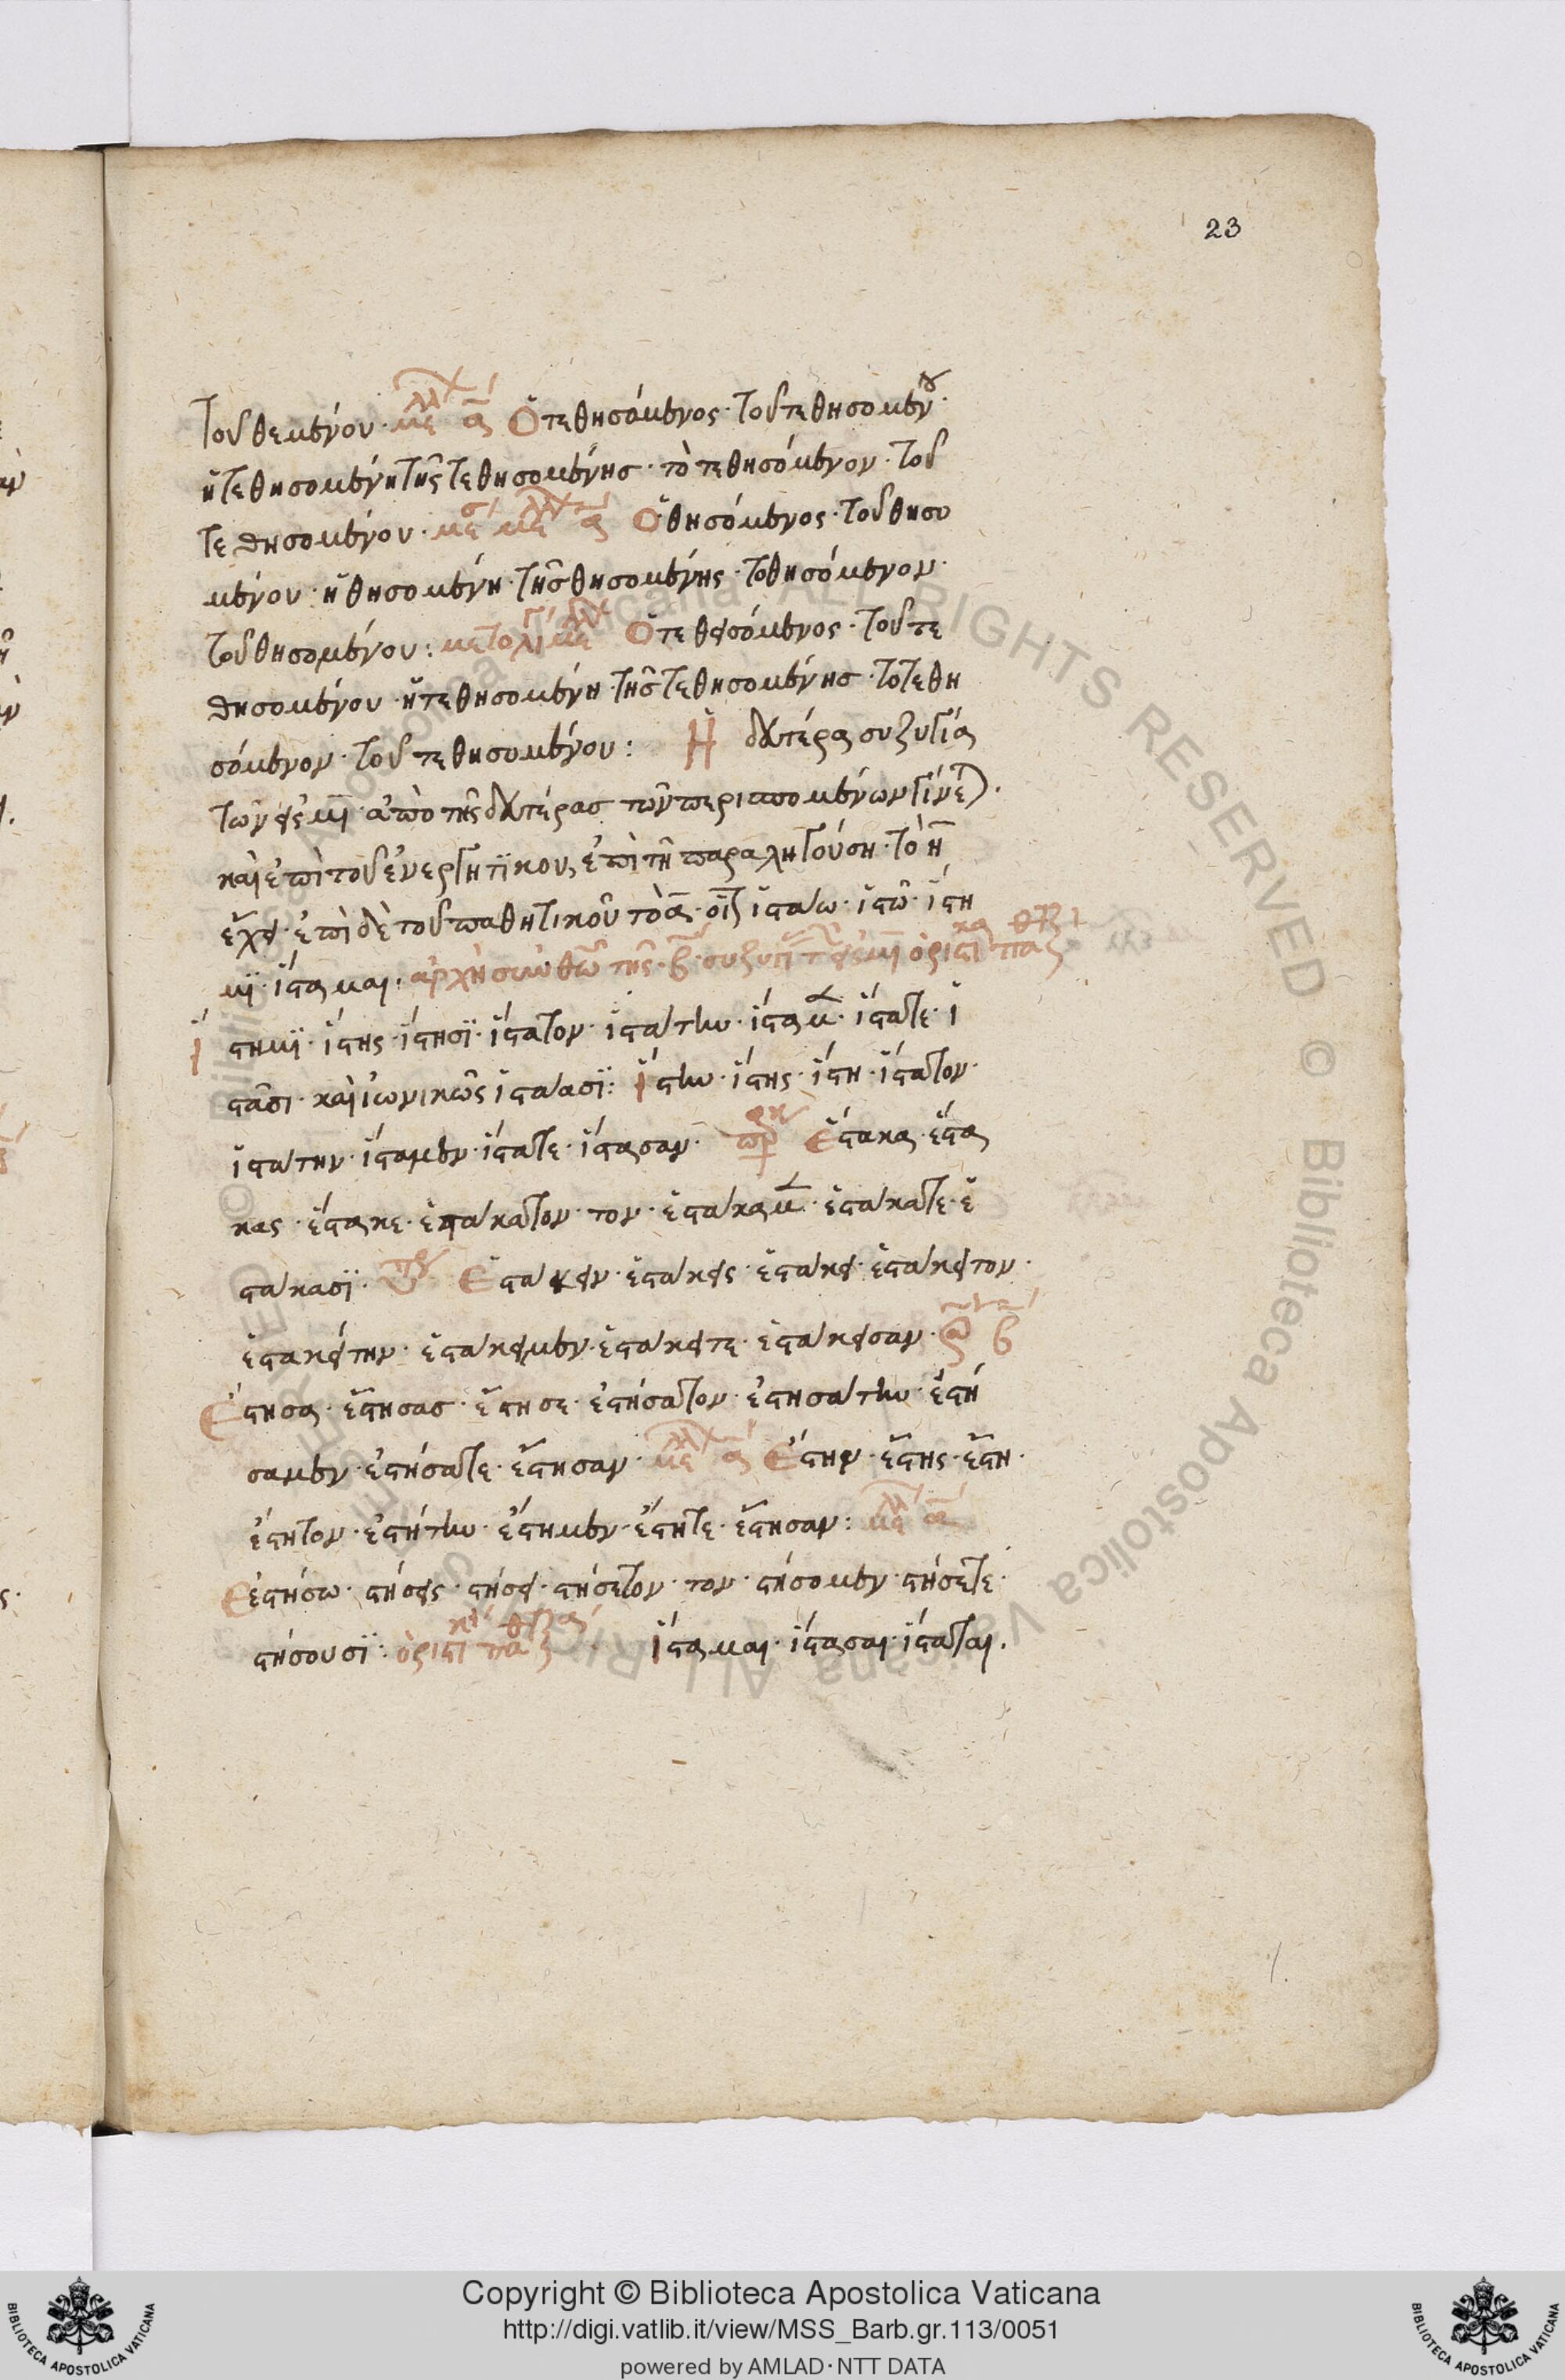 23
τοῦ θεμένου· με λλ α Ὁ τεθησόμενος· τοῦ τεθησομένου·
ἡ τεθησομένη τῆς τεθησομένης· τὸ τεθησόμενον· τοῦ
τεθησομένου· με μελλ α Ὁ θησόμενος· τοῦ θησο
μένου· ἡ θησομένη· τῆς θησομένης· το θησόμενον·
τοῦ θησομένου: μετολι Ὁ τεθεισόμενος· τοῦ τε
θησομένου ἡ τεθησομένη· τῆς τεθησομένης· το τεθη
σόμενον· τοῦ τεθησομένου: Ἡ δευτέρα συζυγία
τῶν εἰς μι ἀπὸ τῆς δευτέρας τῶν περισπομένων γίνεται.
καὶ ἐπὶ τοῦ ἐνεργητικοῦ, ἐπὶ τῆ παραληγούση· τὸ η
ἔχει· ἐπὶ δὲ τοῦ παθητικοῦ τὸ α· οἷον ἱστάω· ἱστῶ· ἵστη
μι· ἵσταμαι. ἀρχὴ σὺν θεῶ τῆς β συζυγι τ εἰς μι ὁριστι
ἵ στημι· ἵστης· ἵστησι· ἵστατον· ἱστάτην· ἵσταμεν· ἵστατε· ἱ
στᾶσι· καὶ ἰωνικῶς ἱστάασι: ἵστην· ἵστης· ἵστη· ἵστατον·
ἱστάτην· ἵσταμεν· ἵστατε· ἵστασαν· πρκ ἕστακα· ἕστα
κας· ἕστακε· ἑστάκατον· τον· ἑστάκαμεν· ἑστάκατε· ἑ
στάκασι· ὑπ Ἑστάκειν· ἑστάκεις· ἑστάκει· ἑστάκειτον·
ἑστακείτην· ἑστάκειμεν· ἑστάκειτε· ἑστάκεισαν· α β
Ἔστησα· ἔστησας· ἔστησε· ἐστήσατον· ἐστησάτην· ἐστή
σαμεν· ἐστήσατε· ἔστησαν· με λλ α Ἔστην· ἔστης· ἔστη·
ἔστητον· ἐστήτην· ἔστημεν· ἔστητε· ἔστησαν: με λλ α
Ἑστήσω· στήσεις· στήσει· στήσετον· τον· στήσομεν· στήσετε·
στήσουσι: ὁριστι Ἵσταμαι· ἵστασαι· ἵσταται.
Copyright © Biblioteca Apostolica Vaticana
http://digi.vatlib.it/view/MSS_Barb.gr.113/0051
powered by AMLAD·NTT DATA